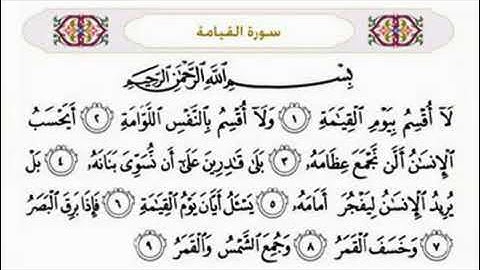 سورة القيامة
بِسْمِ ٱللَّهِ ٱلرَّحْمَٰنِ ٱلرَّحِيمِ
لَآ أُقْسِمُ بِيَوْمِ ٱلْقِيَٰمَةِ ١ وَلَآ أُقْسِمُ بِٱلنَّفْسِ ٱللَّوَّامَةِ ٢ أَيَحْسَبُ
ٱلْإِنسَٰنُ أَلَّن نَّجْمَعَ عِظَامَهُۥ ٣ بَلَىٰ قَٰدِرِينَ عَلَىٰٓ أَن نُّسَوِّىَ بَنَانَهُۥ ٤ بَلْ
يُرِيدُ ٱلْإِنسَٰنُ لِيَفْجُرَ أَمَامَهُۥ ٥ يَسْـَٔلُ أَيَّانَ يَوْمُ ٱلْقِيَٰمَةِ ٦ فَإِذَا بَرِقَ ٱلْبَصَرُ
٧ وَخَسَفَ ٱلْقَمَرُ ٨ وَجُمِعَ ٱلشَّمْسُ وَٱلْقَمَرُ ٩